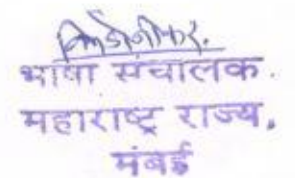 भाषा संचालक.
महाराष्ट्र राज्य,
मुंबई